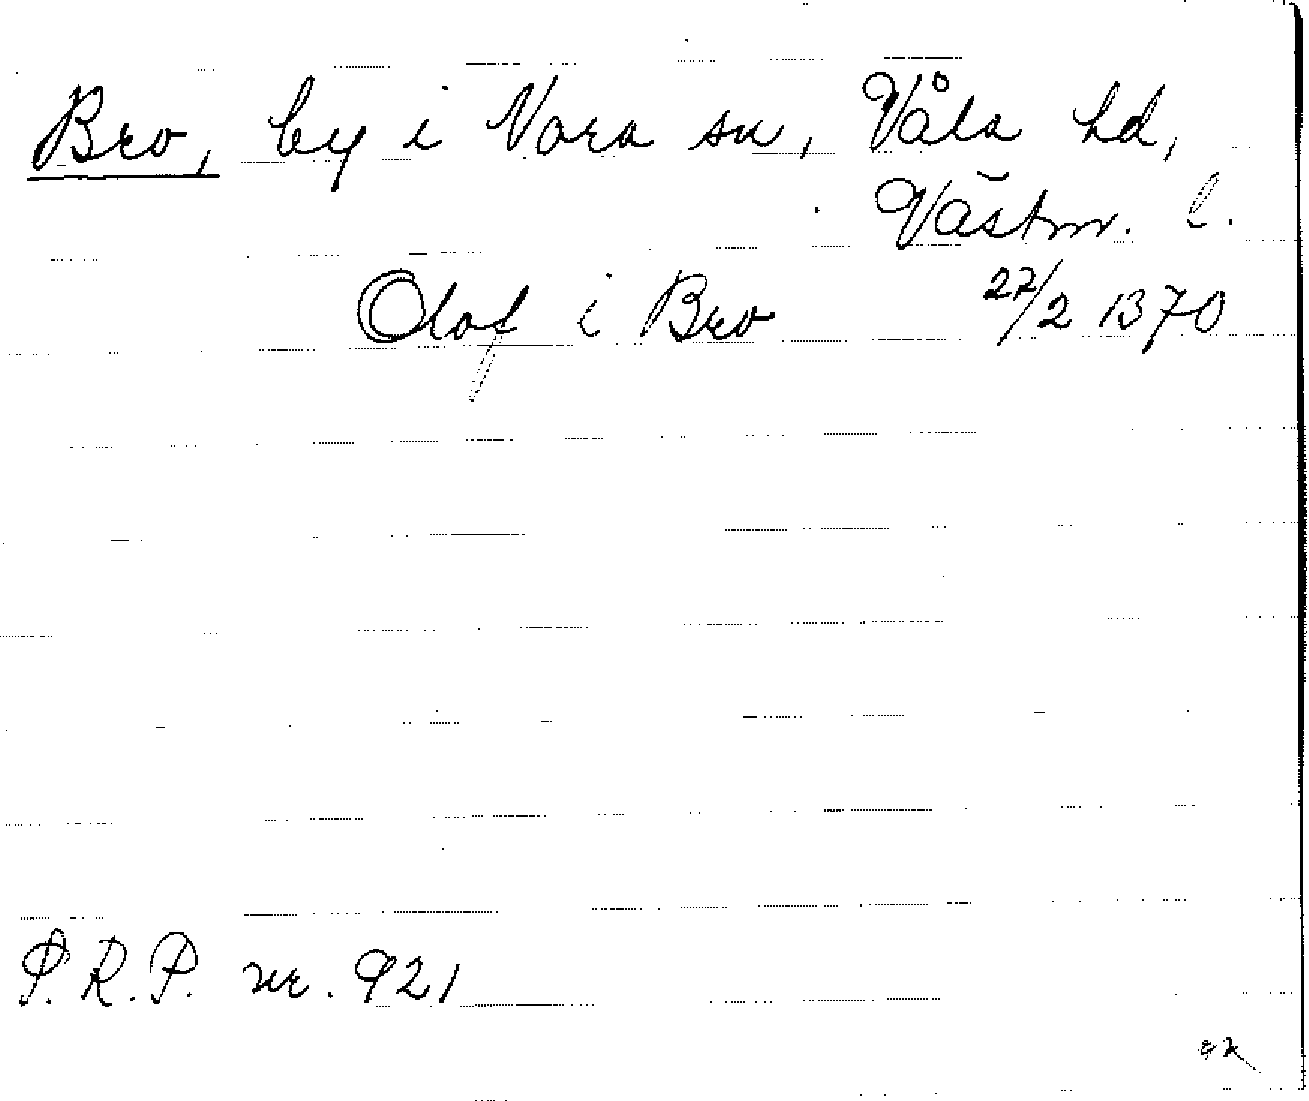 Bro, by i Nora sn, Våla hd,
Västm. l.
Olof i Bro 27/2 1370
P.R.P. nr. 921